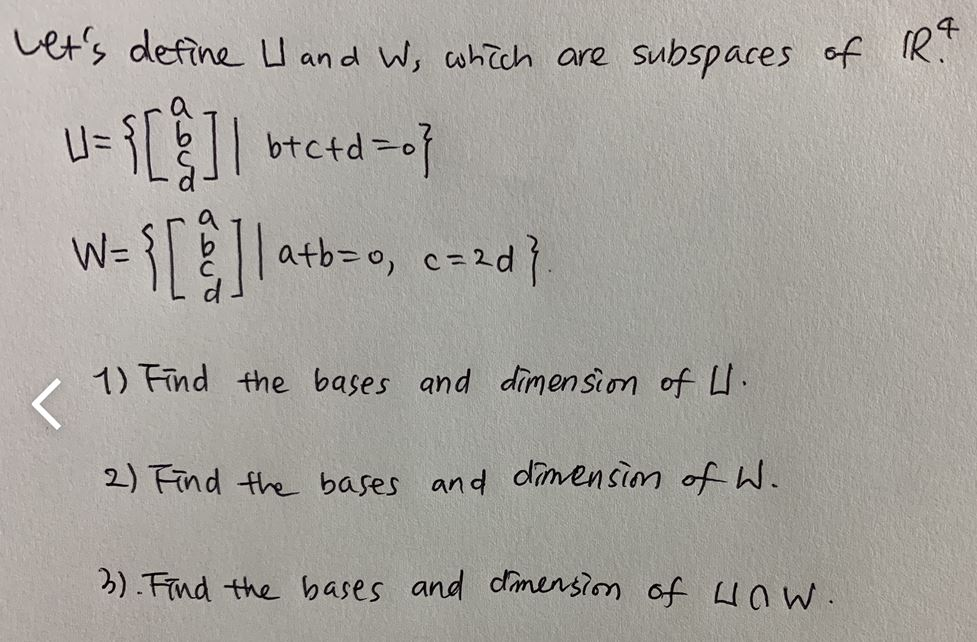 Let's define U and W, which are subspaces of ℝ⁴.
U={[a b c d]| b+c+d=0}
W={[a b c d]| a+b=0, c=2d}.
1) Find the bases and dimension of U.
2) Find the bases and dimension of W.
3). Find the bases and dimension of U∩W.